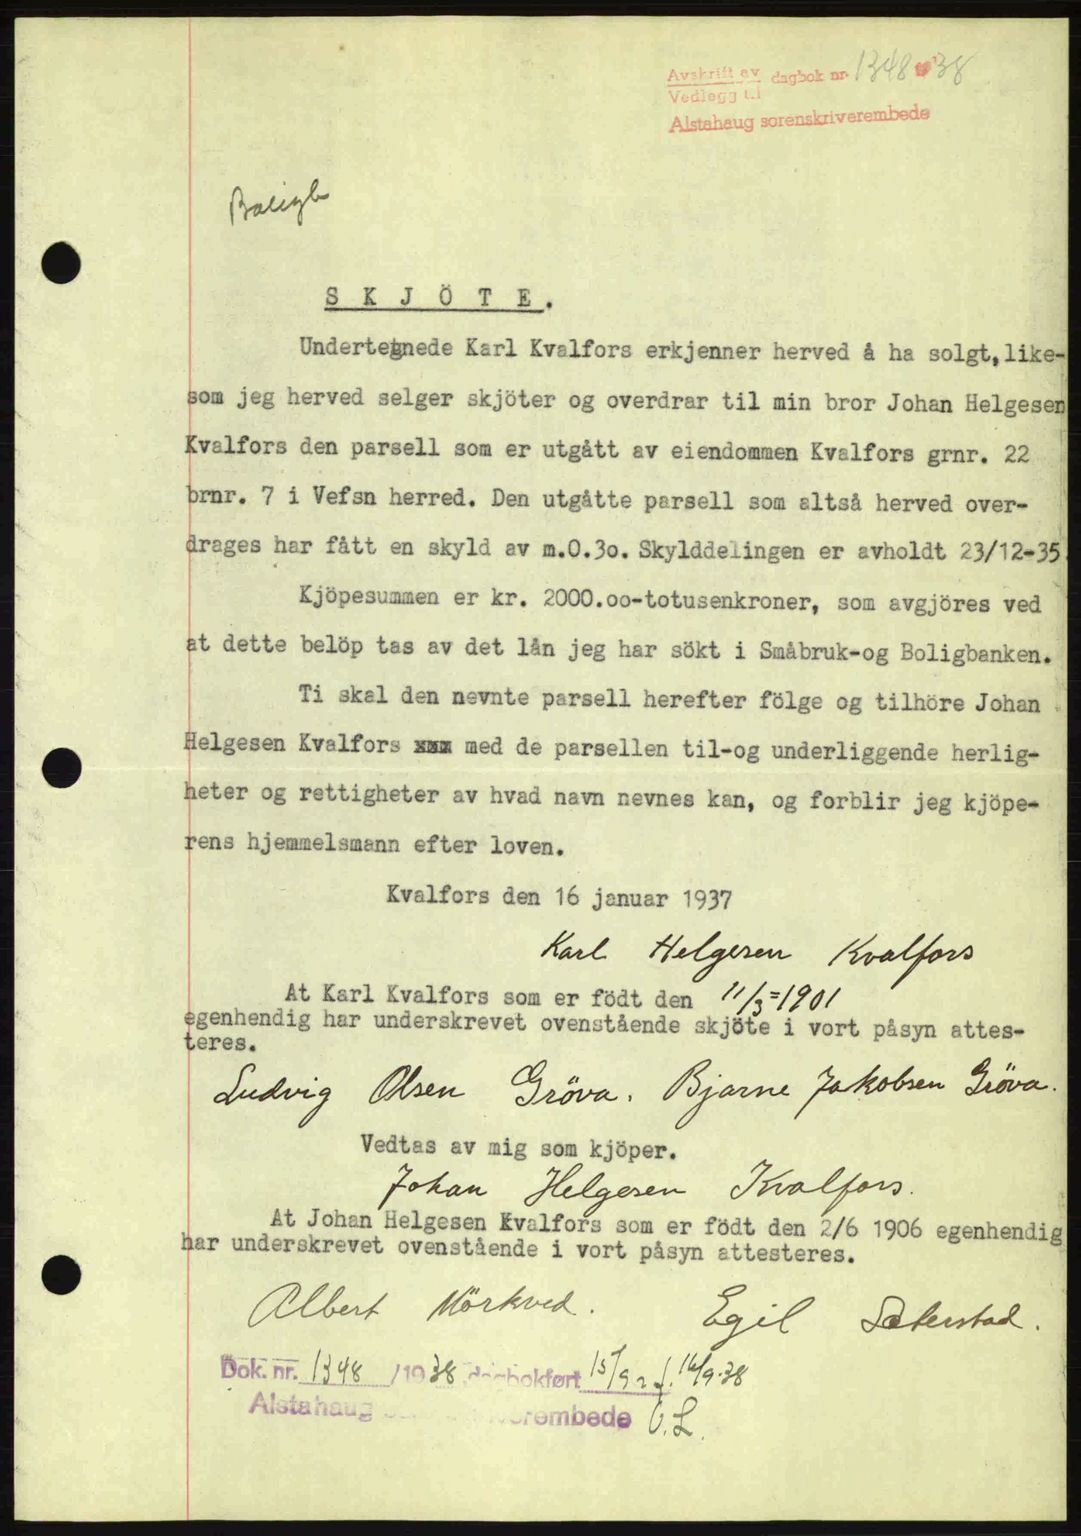 Avskrift av dagbok nr. 1348 38
Vedlegg til
Alstahaug sorenskriverembede
S K J Ö T E .
Undertegnede Karl Kvalfors erkjenner herved å ha solgt, like-
som jeg herved selger skjöter og overdrar til min bror Johan Helgesen
Kvalfors den parsell som er utgått av eiendommen Kvalfors grnr. 22
brnr. 7 i Vefsn herred. Den utgåtte parsell som altså herved over-
drages har fått en skyld av m.0.3o. Skylddelingen er avholdt 23/12-35
Kjöpesummen er kr. 2000.oo-totusenkroner, som avgjöres ved
at dette belöp tas av det lån jeg har sökt i Småbruk-og Boligbanken.
Ti skal den nevnte parsell herefter fölge og tilhöre Johan
Helgesen Kvalfors xxx med de parsellen til-og underliggende herlig-
heter og rettigheter av hvad navn nevnes kan, og forblir jeg kjöpe-
rens hjemmelsmann efter loven.
Kvalfors den 16 januar 1937
Karl Helgesen Kvalfors
At Karl Kvalfors som er födt den 11/3=1901
egenhendig har underskrevet ovenstående skjöte i vort påsyn attes-
teres.
Ludvig Olsen Gröva. Bjarne Jakobsen Gröva.
Vedtas av mig som kjöper.
Johan Helgesen Kvalfors.
At Johan Helgesen Kvalfors som er födt den 2/6 1906 egenhendig
har underskrevet ovenstående i vort påsyn attesteres.
Albert Mörkved. Egil Sæterstad.
Dok. nr. 1348 /1938 dagbokført 15/9 16/9-38
Alstahaug sorenskriverembede